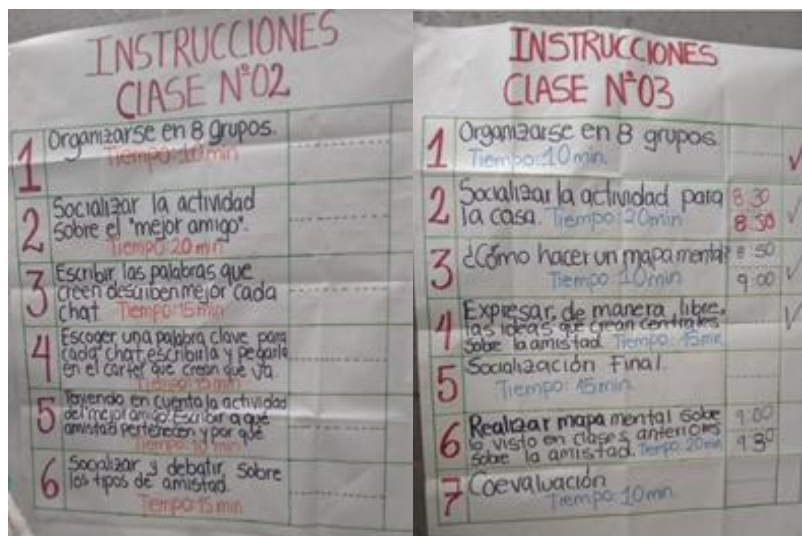 INSTRUCCIONES
CLASE N°02
1 Organizarse en 8 grupos.
Tiempo: 10 min
2 Socializar la actividad
sobre el "mejor amigo".
Tiempo: 20 min
3 Escribir las palabras que
creen describen mejor cada
chat Tiempo: 15 min
4 Escoger una palabra clave para
cada chat, escribirla y pegarla
en el cartel que crean que va
Tiempo: 15 min
5 Teniendo en cuenta la actividad
del mejor amigo. Escribir a qué
amistad pertenecen y por qué
Tiempo: 10 min
6 Socializar y debatir, sobre
los tipos de amistad.
Tiempo: 15 min
INSTRUCCIONES
CLASE N°03
1 Organizarse en 8 grupos.
Tiempo: 10 min.
2 Socializar la actividad para 8:30
la casa. Tiempo: 20min 8:50
3 ¿Cómo hacer un mapa mental? 8:50
Tiempo: 10min 9:00
4 Expresar, de manera libre,
las ideas que crean centrales
sobre la amistad. Tiempo: 15min
5 Socialización Final.
Tiempo: 15min
6 Realizar mapa mental sobre 9:00
lo visto en clases anteriores 9:30
sobre la amistad. Tiempo: 20min
7 Coevaluación
Tiempo: 10min